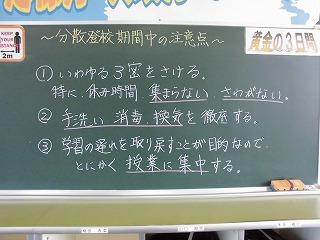 KEEP YOUR DISTANCE
2m
～分散登校期間中の注意点～
黄金の3日間
① いわゆる3密をさける。
特に、休み時間 集まらない さわがない。
② 手洗い 消毒 換気を徹底する。
③ 学習の遅れを取り戻すことが目的なので
とにかく 授業に集中する。